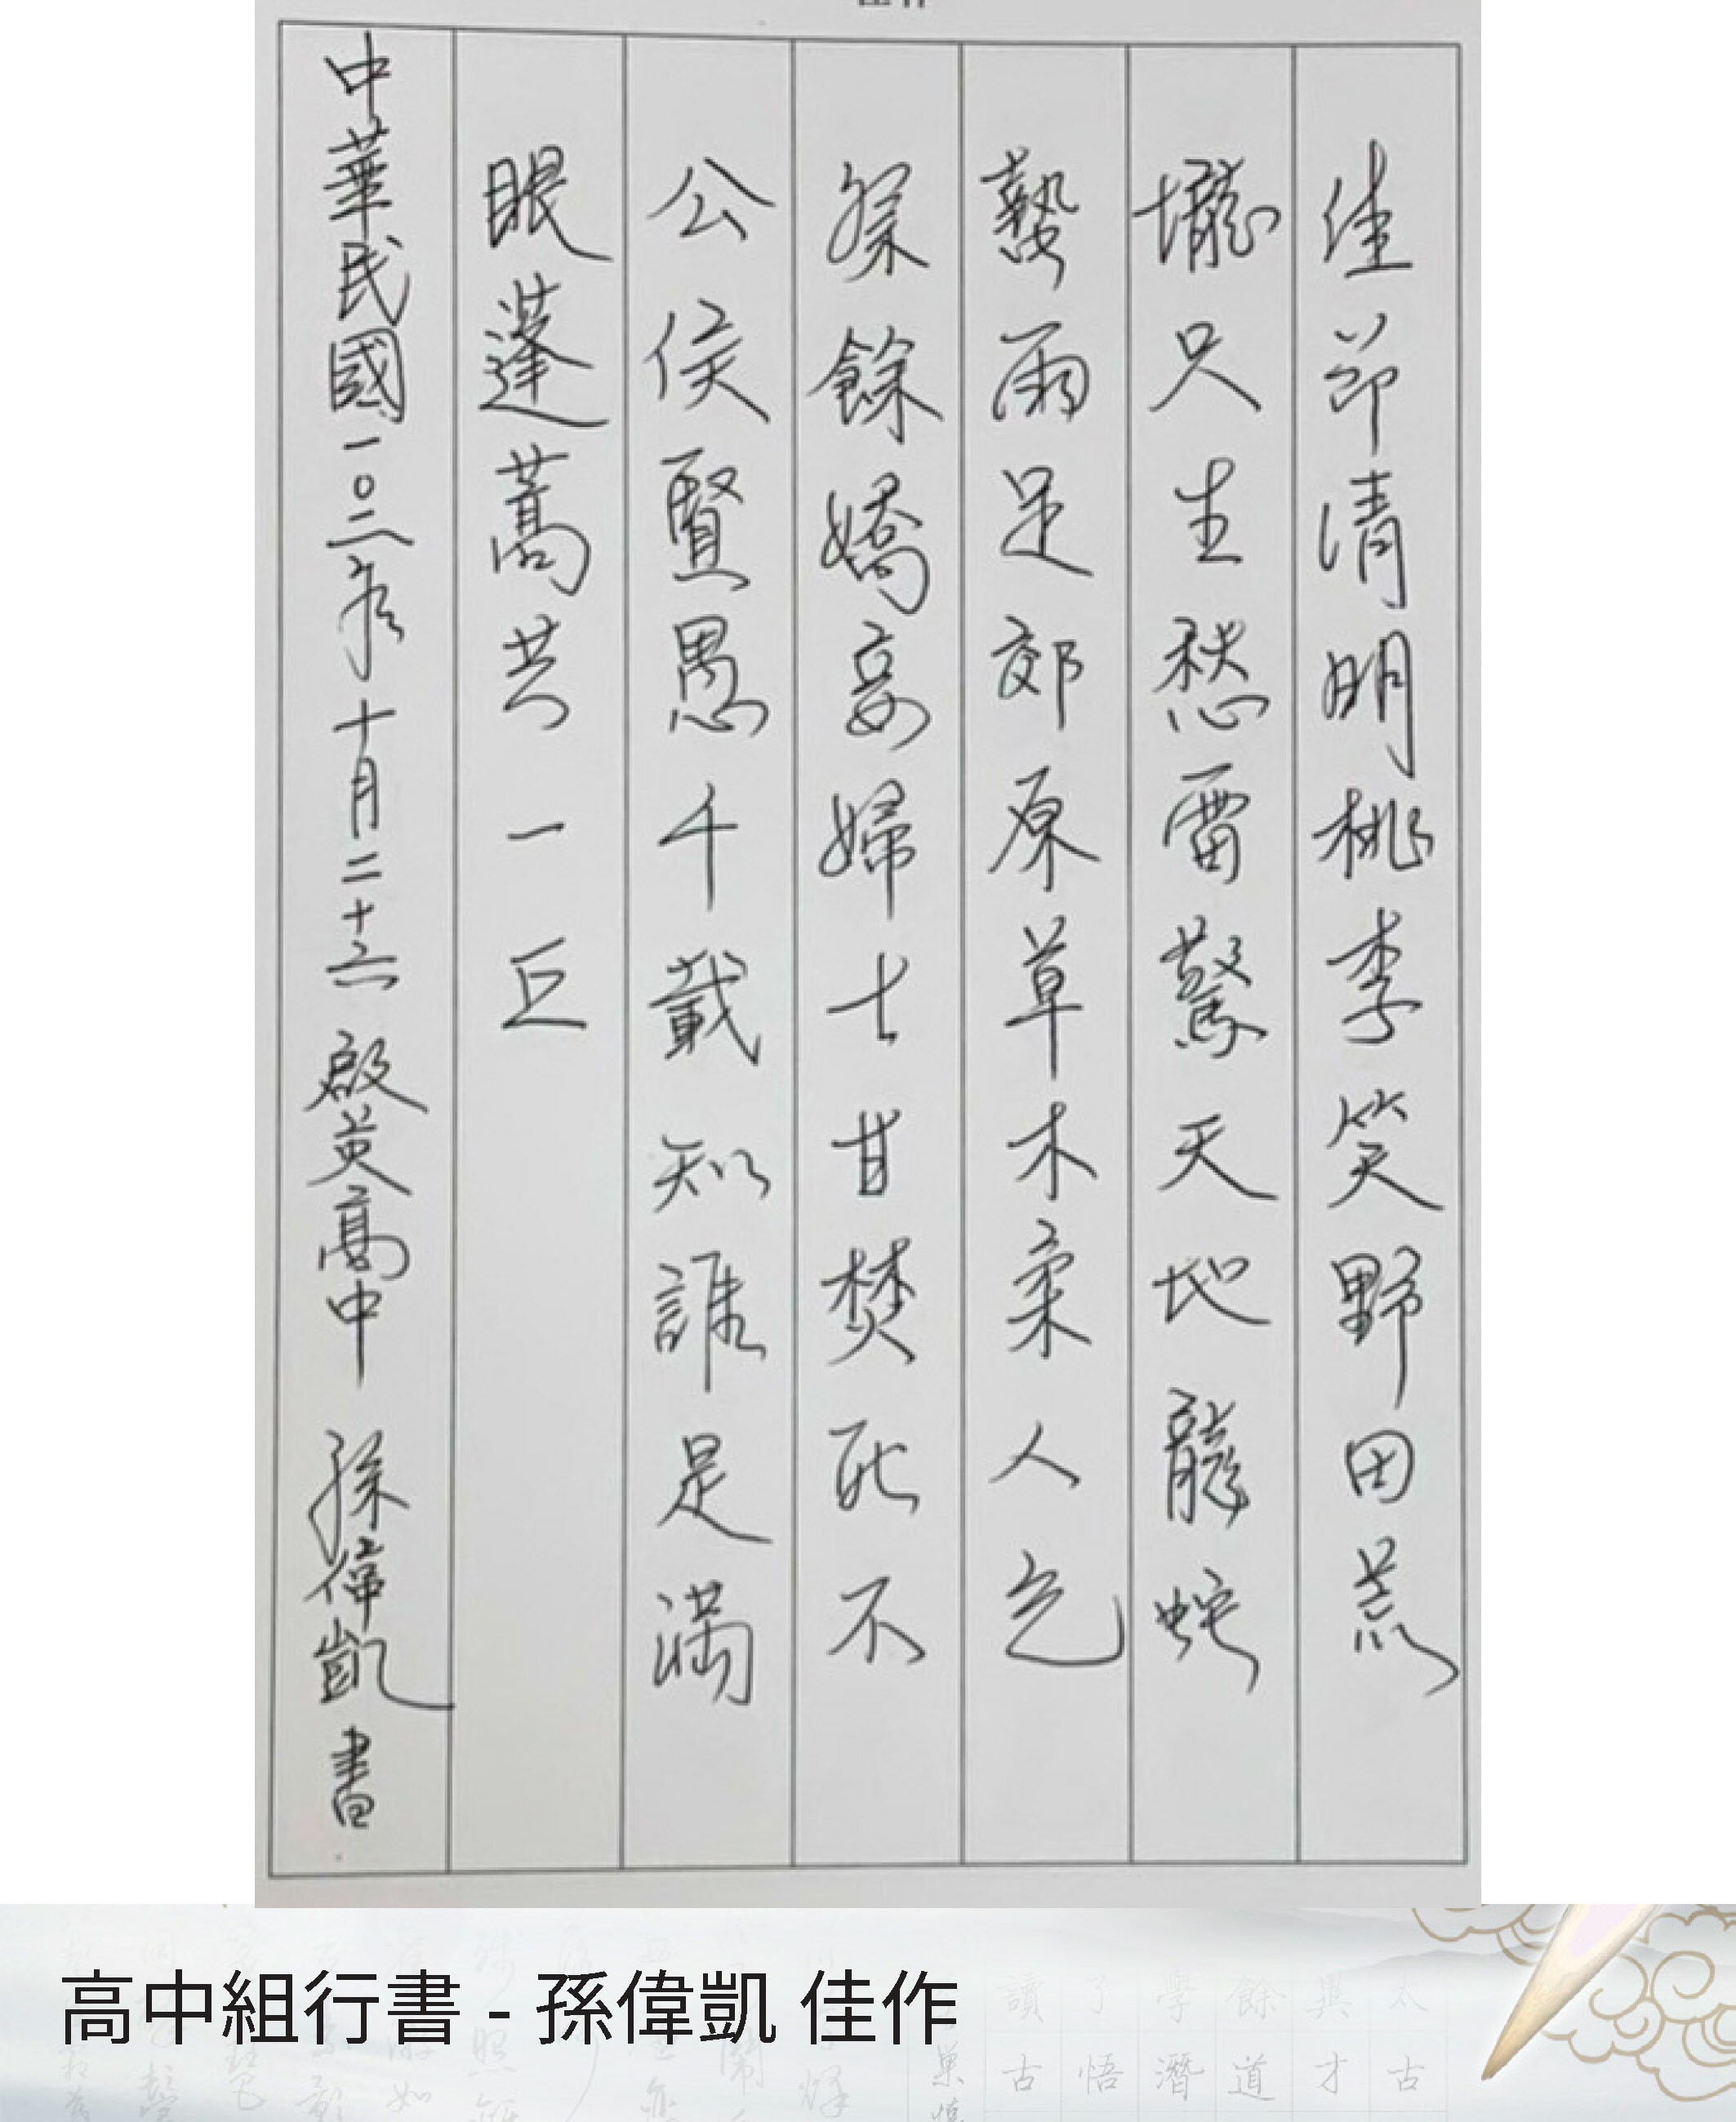 佳節清明桃李笑野田荒
壠只生愁雷驚天地龍蛇
蟄雨足郊原草木柔人乞
祭餘嬌妾婦士甘焚死不
公侯賢愚千載知誰是滿
眼蓬蒿共一丘
中華民國一〇二年十月二十六 啟英高中 孫偉凱 書
高中組行書 - 孫偉凱 佳作
讀了學餘與太
古悟潛道才古